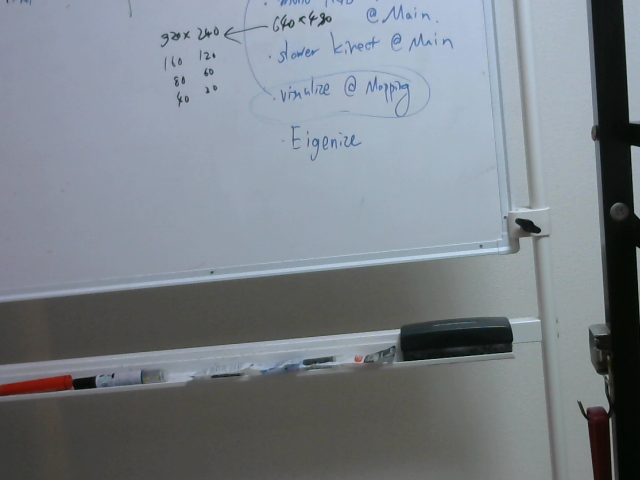 @ Main.
320 × 240 ← 640 × 480
160 120
80 60
40 30
· slower kinect @ Main
· visulize @ Mapping
· Eigenize